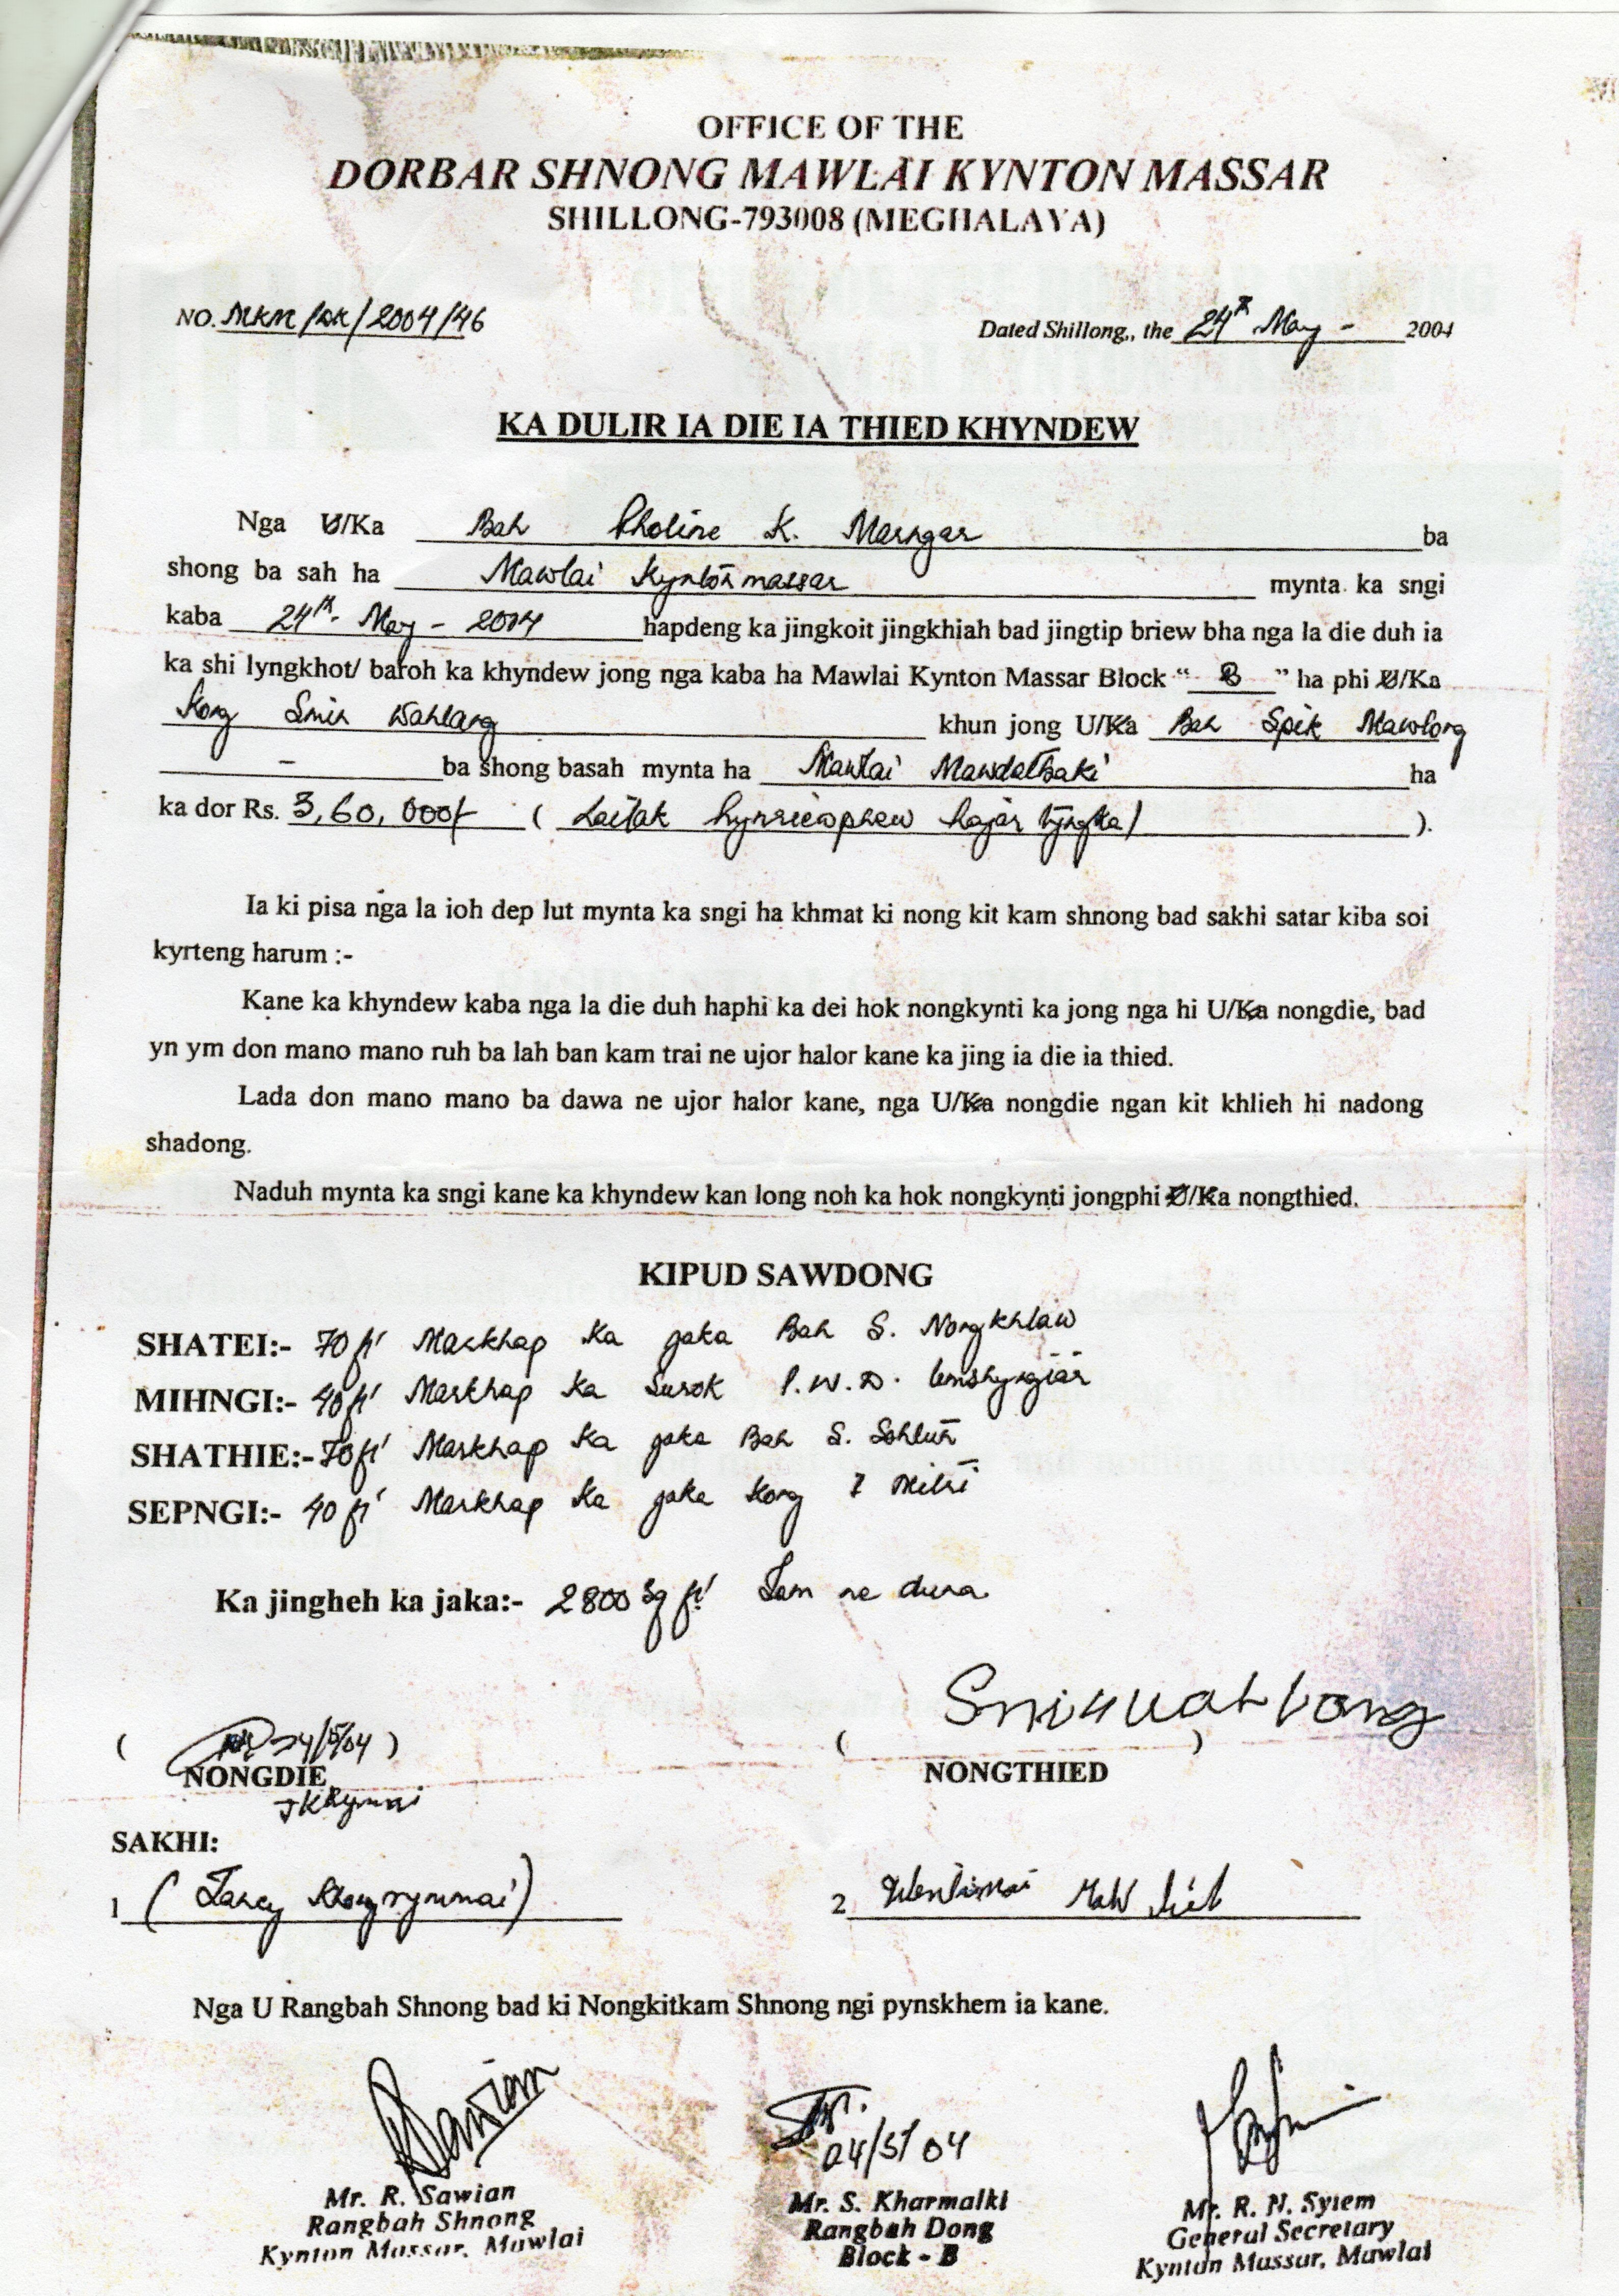 OFFICE OF THE
DORBAR SHNONG MAWLAI KYNTON MASSAR
SHILLONG-793008 (MEGHALAYA)
NO. MKM/DK/2004/46 Dated Shillong,, the 24th May - 2004
KA DULIR IA DIE IA THIED KHYNDEW
Nga U/Ka Bah Pholine K. Marngar ba
shong ba sah ha Mawlai Kyntonmassar mynta ka sngi
kaba 24th May - 2004 hapdeng ka jingkoit jingkhiah bad jingtip briew bha nga la die duh ia
ka shi lyngkhot/ baroh ka khyndew jong nga kaba ha Mawlai Kynton Massar Block "B" ha phi U/Ka
Kong Snin Wahlang khun jong U/Ka Bah Spik Mawlong
- ba shong basah mynta ha Mawlai Mawdatbaki ha
ka dor Rs. 3,60,000/- ( Lailak hynriewphew hajar tyngka ).
Ia ki pisa nga la ioh dep lut mynta ka sngi ha khmat ki nong kit kam shnong bad sakhi satar kiba soi
kyrteng harum :-
Kane ka khyndew kaba nga la die duh haphi ka dei hok nongkynti ka jong nga hi U/Ka nongdie, bad
yn ym don mano mano ruh ba lah ban kam trai ne ujor halor kane ka jing ia die ia thied.
Lada don mano mano ba dawa ne ujor halor kane, nga U/Ka nongdie ngan kit khlieh hi nadong
shadong.
Naduh mynta ka sngi kane ka khyndew kan long noh ka hok nongkynti jongphi U/Ka nongthied.
KIPUD SAWDONG
SHATEI:- 70 ft Markhap ka jaka Bah S. Nongkhlaw
MIHNGI:- 40 ft Markhap ka Surok P.W.D. Umshyngiar
SHATHIE:- 70 ft Markhap ka jaka Bah S. Sohtun
SEPNGI:- 40 ft Markhap ka jaka Kong
Ka jingheh ka jaka:- 2800 Sq ft Tam ne duna
( 24/5/04 ) ( )
NONGDIE NONGTHIED
SAKHI:
1 ( Khongrymmai) 2
Nga U Rangbah Shnong bad ki Nongkitkam Shnong ngi pynskhem ia kane.
24/5/04
Mr. R. Sawian Mr. S. Kharmalki Mr. R. N. Syiem
Rangbah Shnong Rangbah Dong General Secretary
Kynton Massar, Mawlai Block - B Kynton Massar, Mawlai